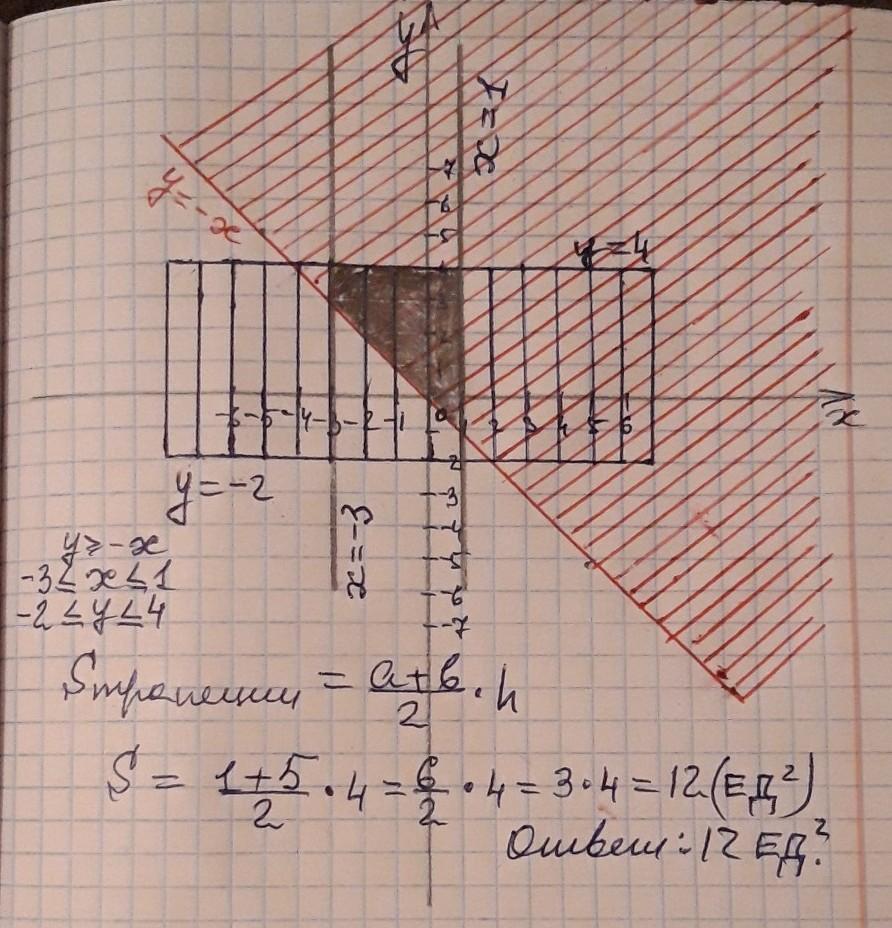 y
x=1
7
6
5
y=-x
y=4
-6 -5 -4 -3 -2 -1 0 1 2 3 4 5 6
x
2
y=-2
-3
-4
-5
-6
-7
x=-3
y≥-x
-3≤x≤1
-2≤y≤4
Sтрапеции = (a+b)/2 · h
S = (1+5)/2 · 4 = 6/2 · 4 = 3·4 = 12 (ЕД²)
Ответ: 12 ЕД².